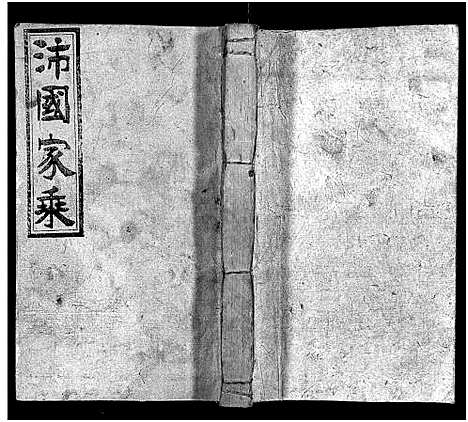 沛國家乘